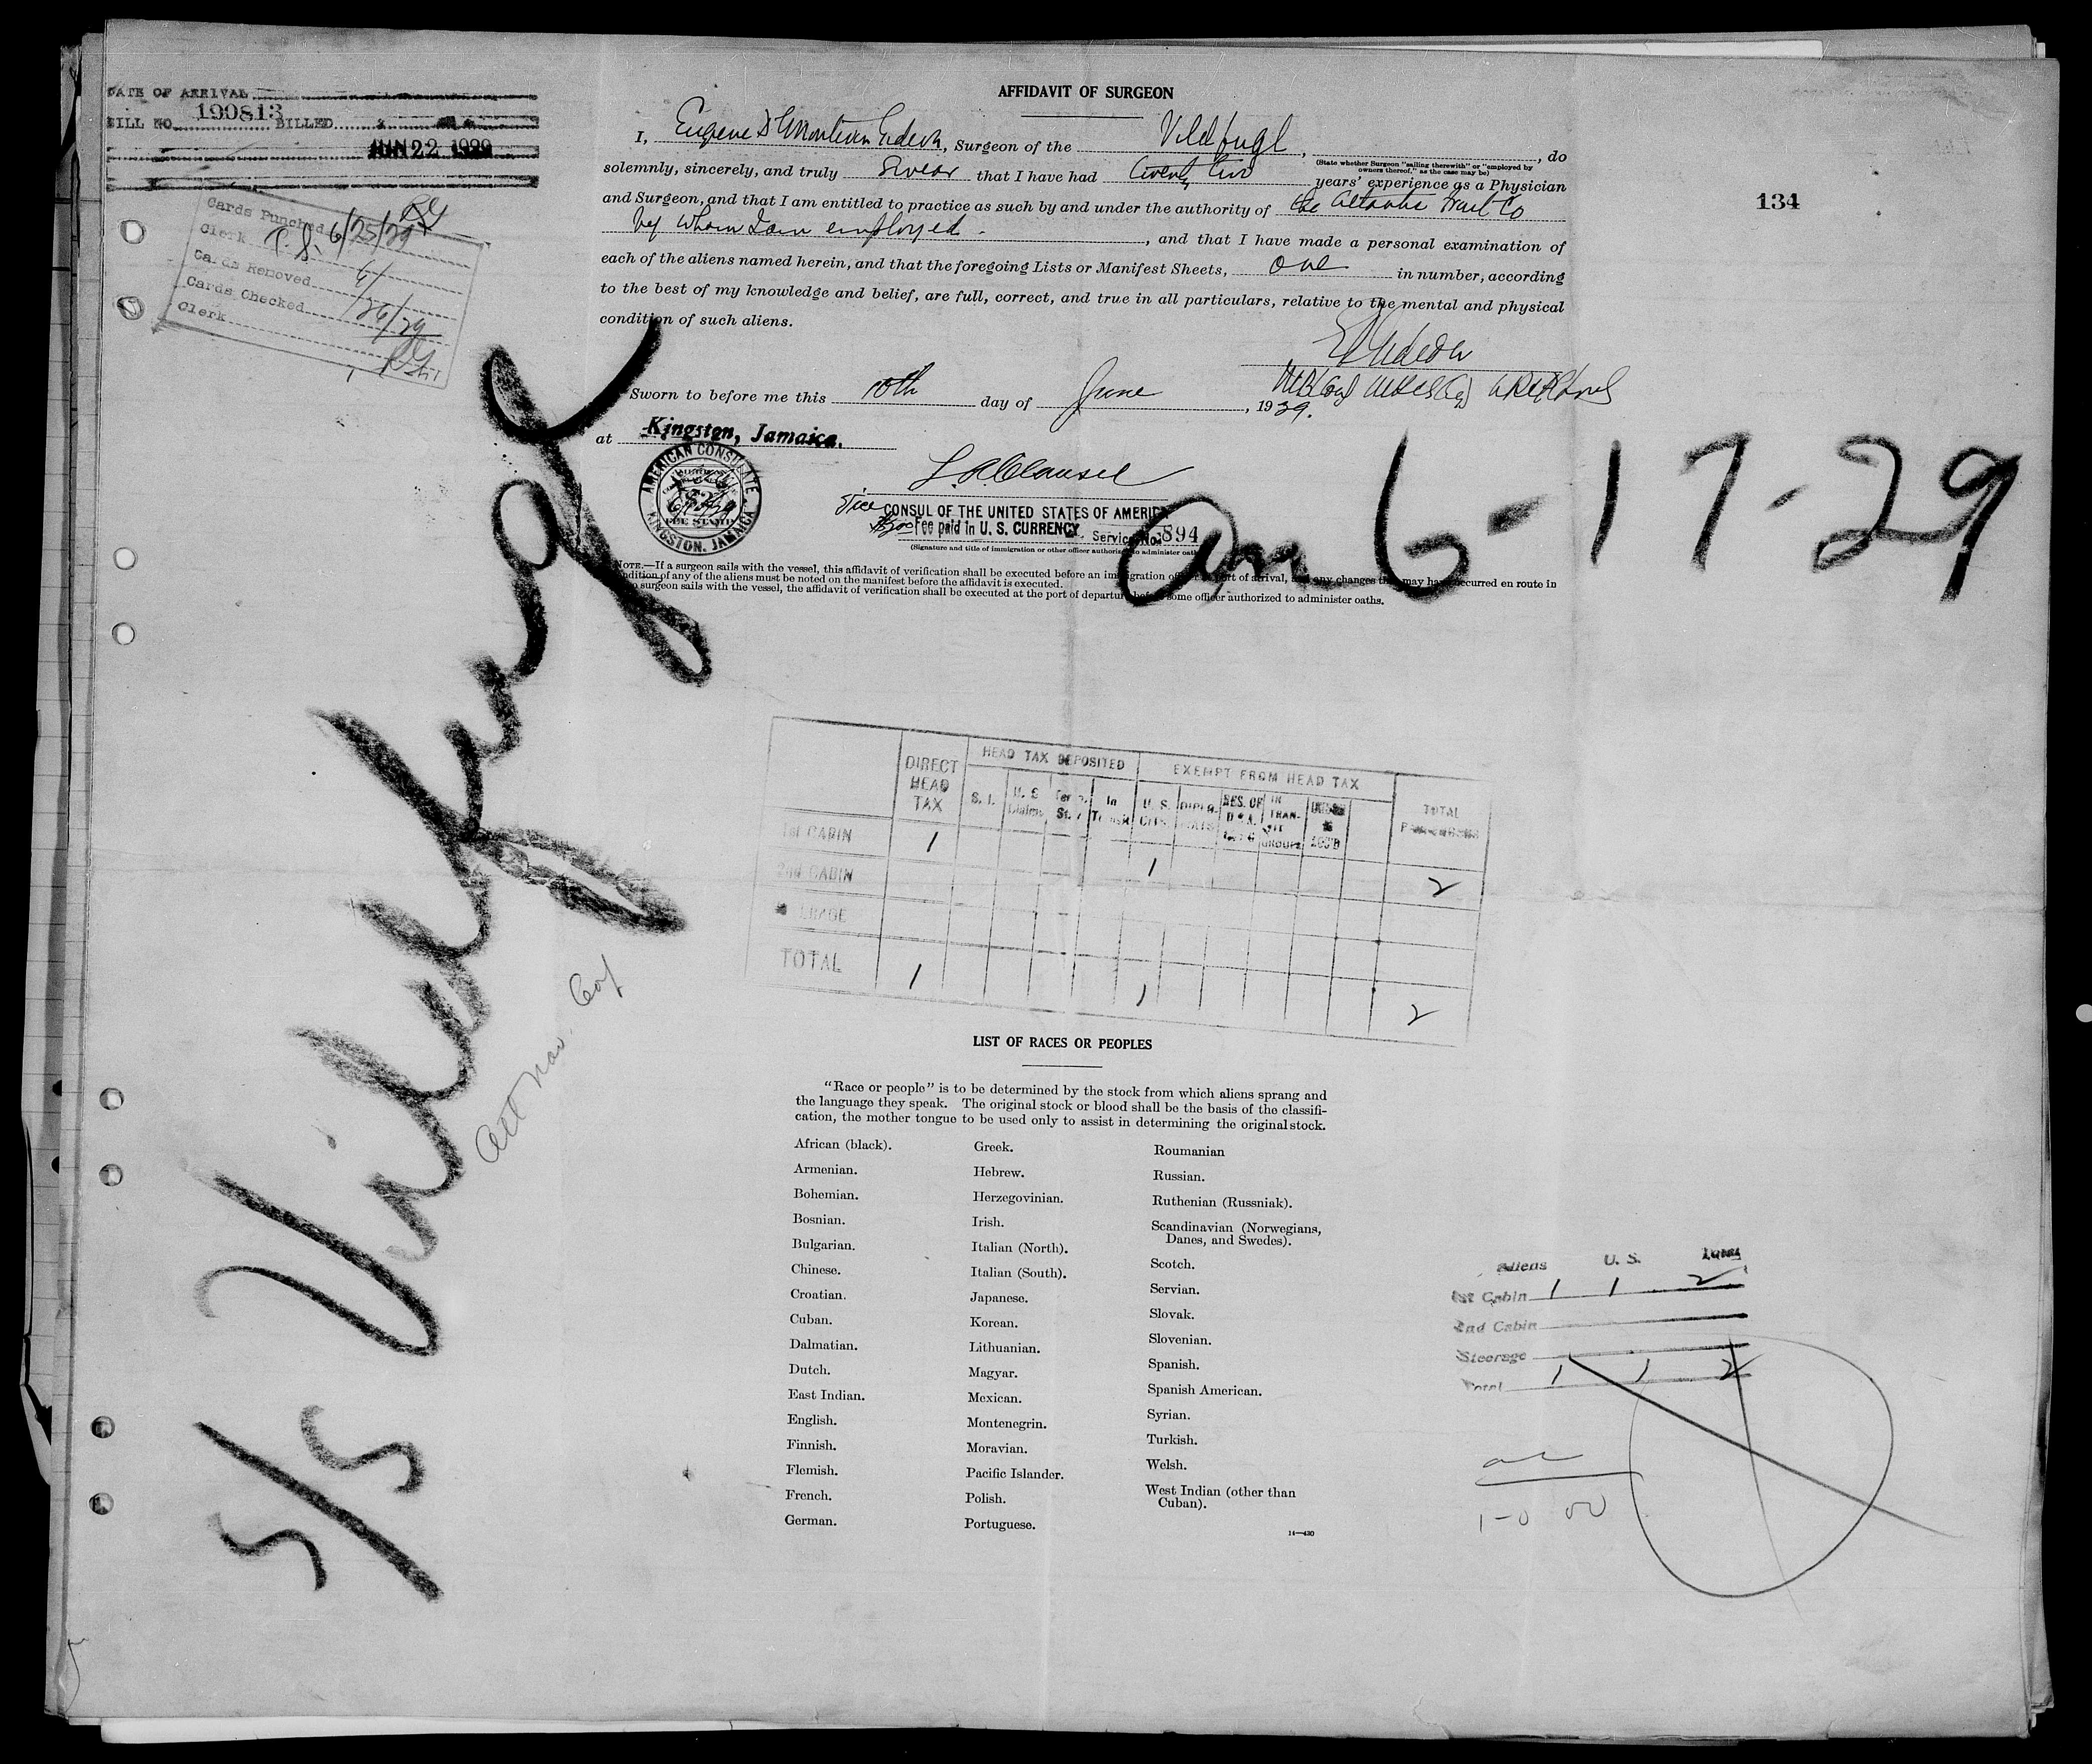 DATE OF ARRIVAL
BILL NO. 190813 BILLED
JUN 22 1929
Cards Punched 6/25/29
Clerk
Cards Removed 6/
Cards Checked /26/29
Clerk
134
AFFIDAVIT OF SURGEON
I, Eugene , Surgeon of the Vildfugl, , do
(State whether Surgeon "sailing therewith" or "employed by
owners thereof," as the case may be)
solemnly, sincerely, and truly Swear that I have had twenty two years' experience as a Physician
and Surgeon, and that I am entitled to practice as such by and under the authority of the Atlantic Fruit Co
by whom I am employed. , and that I have made a personal examination of
each of the aliens named herein, and that the foregoing Lists or Manifest Sheets, one in number, according
to the best of my knowledge and belief, are full, correct, and true in all particulars, relative to the mental and physical
condition of such aliens.
Sworn to before me this 10th day of June , 1929.
at Kingston, Jamaica.
AMERICAN CONSULATE
FEE STAMP
KINGSTON, JAMAICA
Vice CONSUL OF THE UNITED STATES OF AMERICA
Fee paid in U. S. CURRENCY. Service No. 894
(Signature and title of immigration or other officer authorized to administer oaths)
NOTE.—If a surgeon sails with the vessel, this affidavit of verification shall be executed before an immigration officer at port of arrival, and any changes that may have occurred en route in
condition of any of the aliens must be noted on the manifest before the affidavit is executed.
no surgeon sails with the vessel, the affidavit of verification shall be executed at the port of departure before some officer authorized to administer oaths.
6-17-29
S/S Vildfugl
DIRECT HEAD TAX
HEAD TAX DEPOSITED
EXEMPT FROM HEAD TAX
TOTAL
S. I.
U. S.
In Transit
U. S. CITS.
RES. OF
IN TRANSIT GROUPS
1st CABIN 1 1 2
2nd CABIN
TOTAL 1 1 2
LIST OF RACES OR PEOPLES
"Race or people" is to be determined by the stock from which aliens sprang and
the language they speak. The original stock or blood shall be the basis of the classifi-
cation, the mother tongue to be used only to assist in determining the original stock.
African (black).
Armenian.
Bohemian.
Bosnian.
Bulgarian.
Chinese.
Croatian.
Cuban.
Dalmatian.
Dutch.
East Indian.
English.
Finnish.
Flemish.
French.
German.
Greek.
Hebrew.
Herzegovinian.
Irish.
Italian (North).
Italian (South).
Japanese.
Korean.
Lithuanian.
Magyar.
Mexican.
Montenegrin.
Moravian.
Pacific Islander.
Polish.
Portuguese.
Roumanian
Russian.
Ruthenian (Russniak).
Scandinavian (Norwegians,
Danes, and Swedes).
Scotch.
Servian.
Slovak.
Slovenian.
Spanish.
Spanish American.
Syrian.
Turkish.
Welsh.
West Indian (other than
Cuban).
14—430
Aliens U. S. Total
1st Cabin 1 1 2
2nd Cabin
Steerage
Total 1 1 2